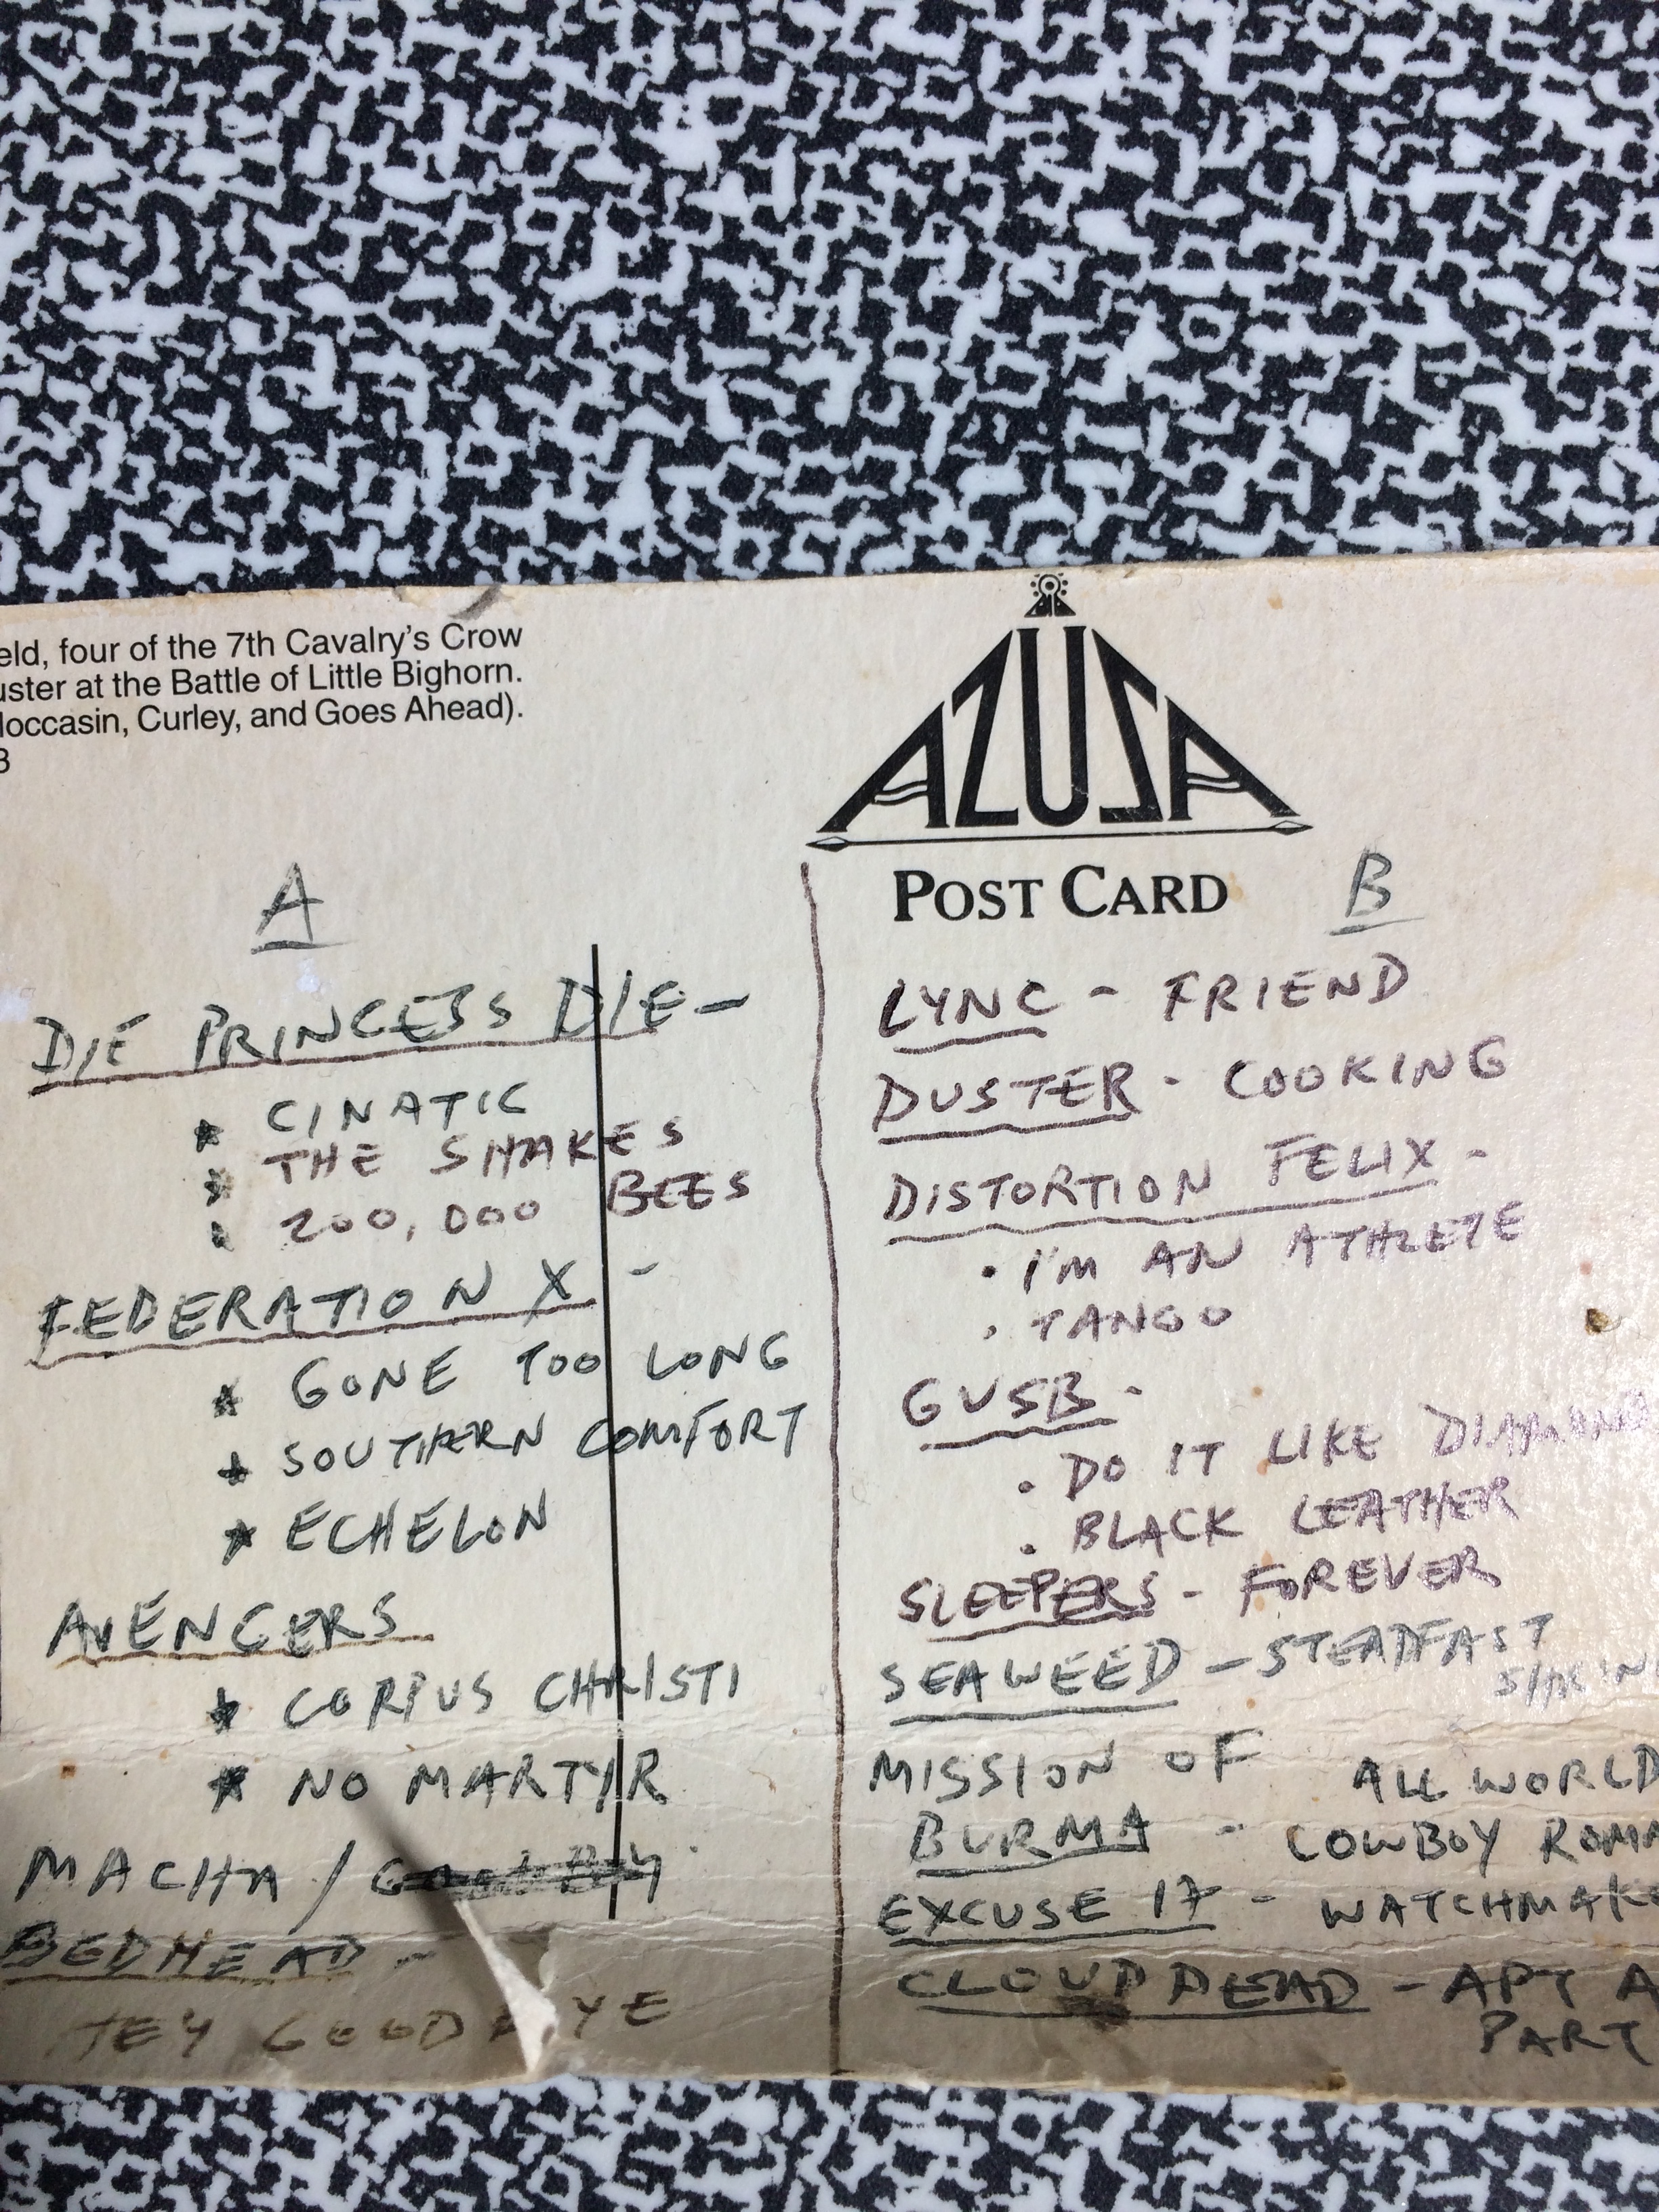 eld, four of the 7th Cavalry's Crow
uster at the Battle of Little Bighorn.
loccasin, Curley, and Goes Ahead).
3
AZUSA
POST CARD
A
DIE PRINCESS DIE -
* CINATIC
* THE SHAKES
* 200,000 BEES
FEDERATION X -
* GONE TOO LONG
* SOUTHERN COMFORT
* ECHELON
AVENGERS
* CORPUS CHRISTI
* NO MARTYR
MACHA /
BEDHEAD -
HEY GOODBYE
B
LYNC - FRIEND
DUSTER - COOKING
DISTORTION FELIX -
• I'M AN ATHLETE
• TANGO
GVSB -
• DO IT LIKE DIAMOND
• BLACK LEATHER
SLEEPERS - FOREVER
SEAWEED - STEADFAST
MISSION OF ALL WORLD
BURMA - COWBOY ROMA
EXCUSE 17 - WATCHMAKE
CLOUDDEAD - APT A
PART